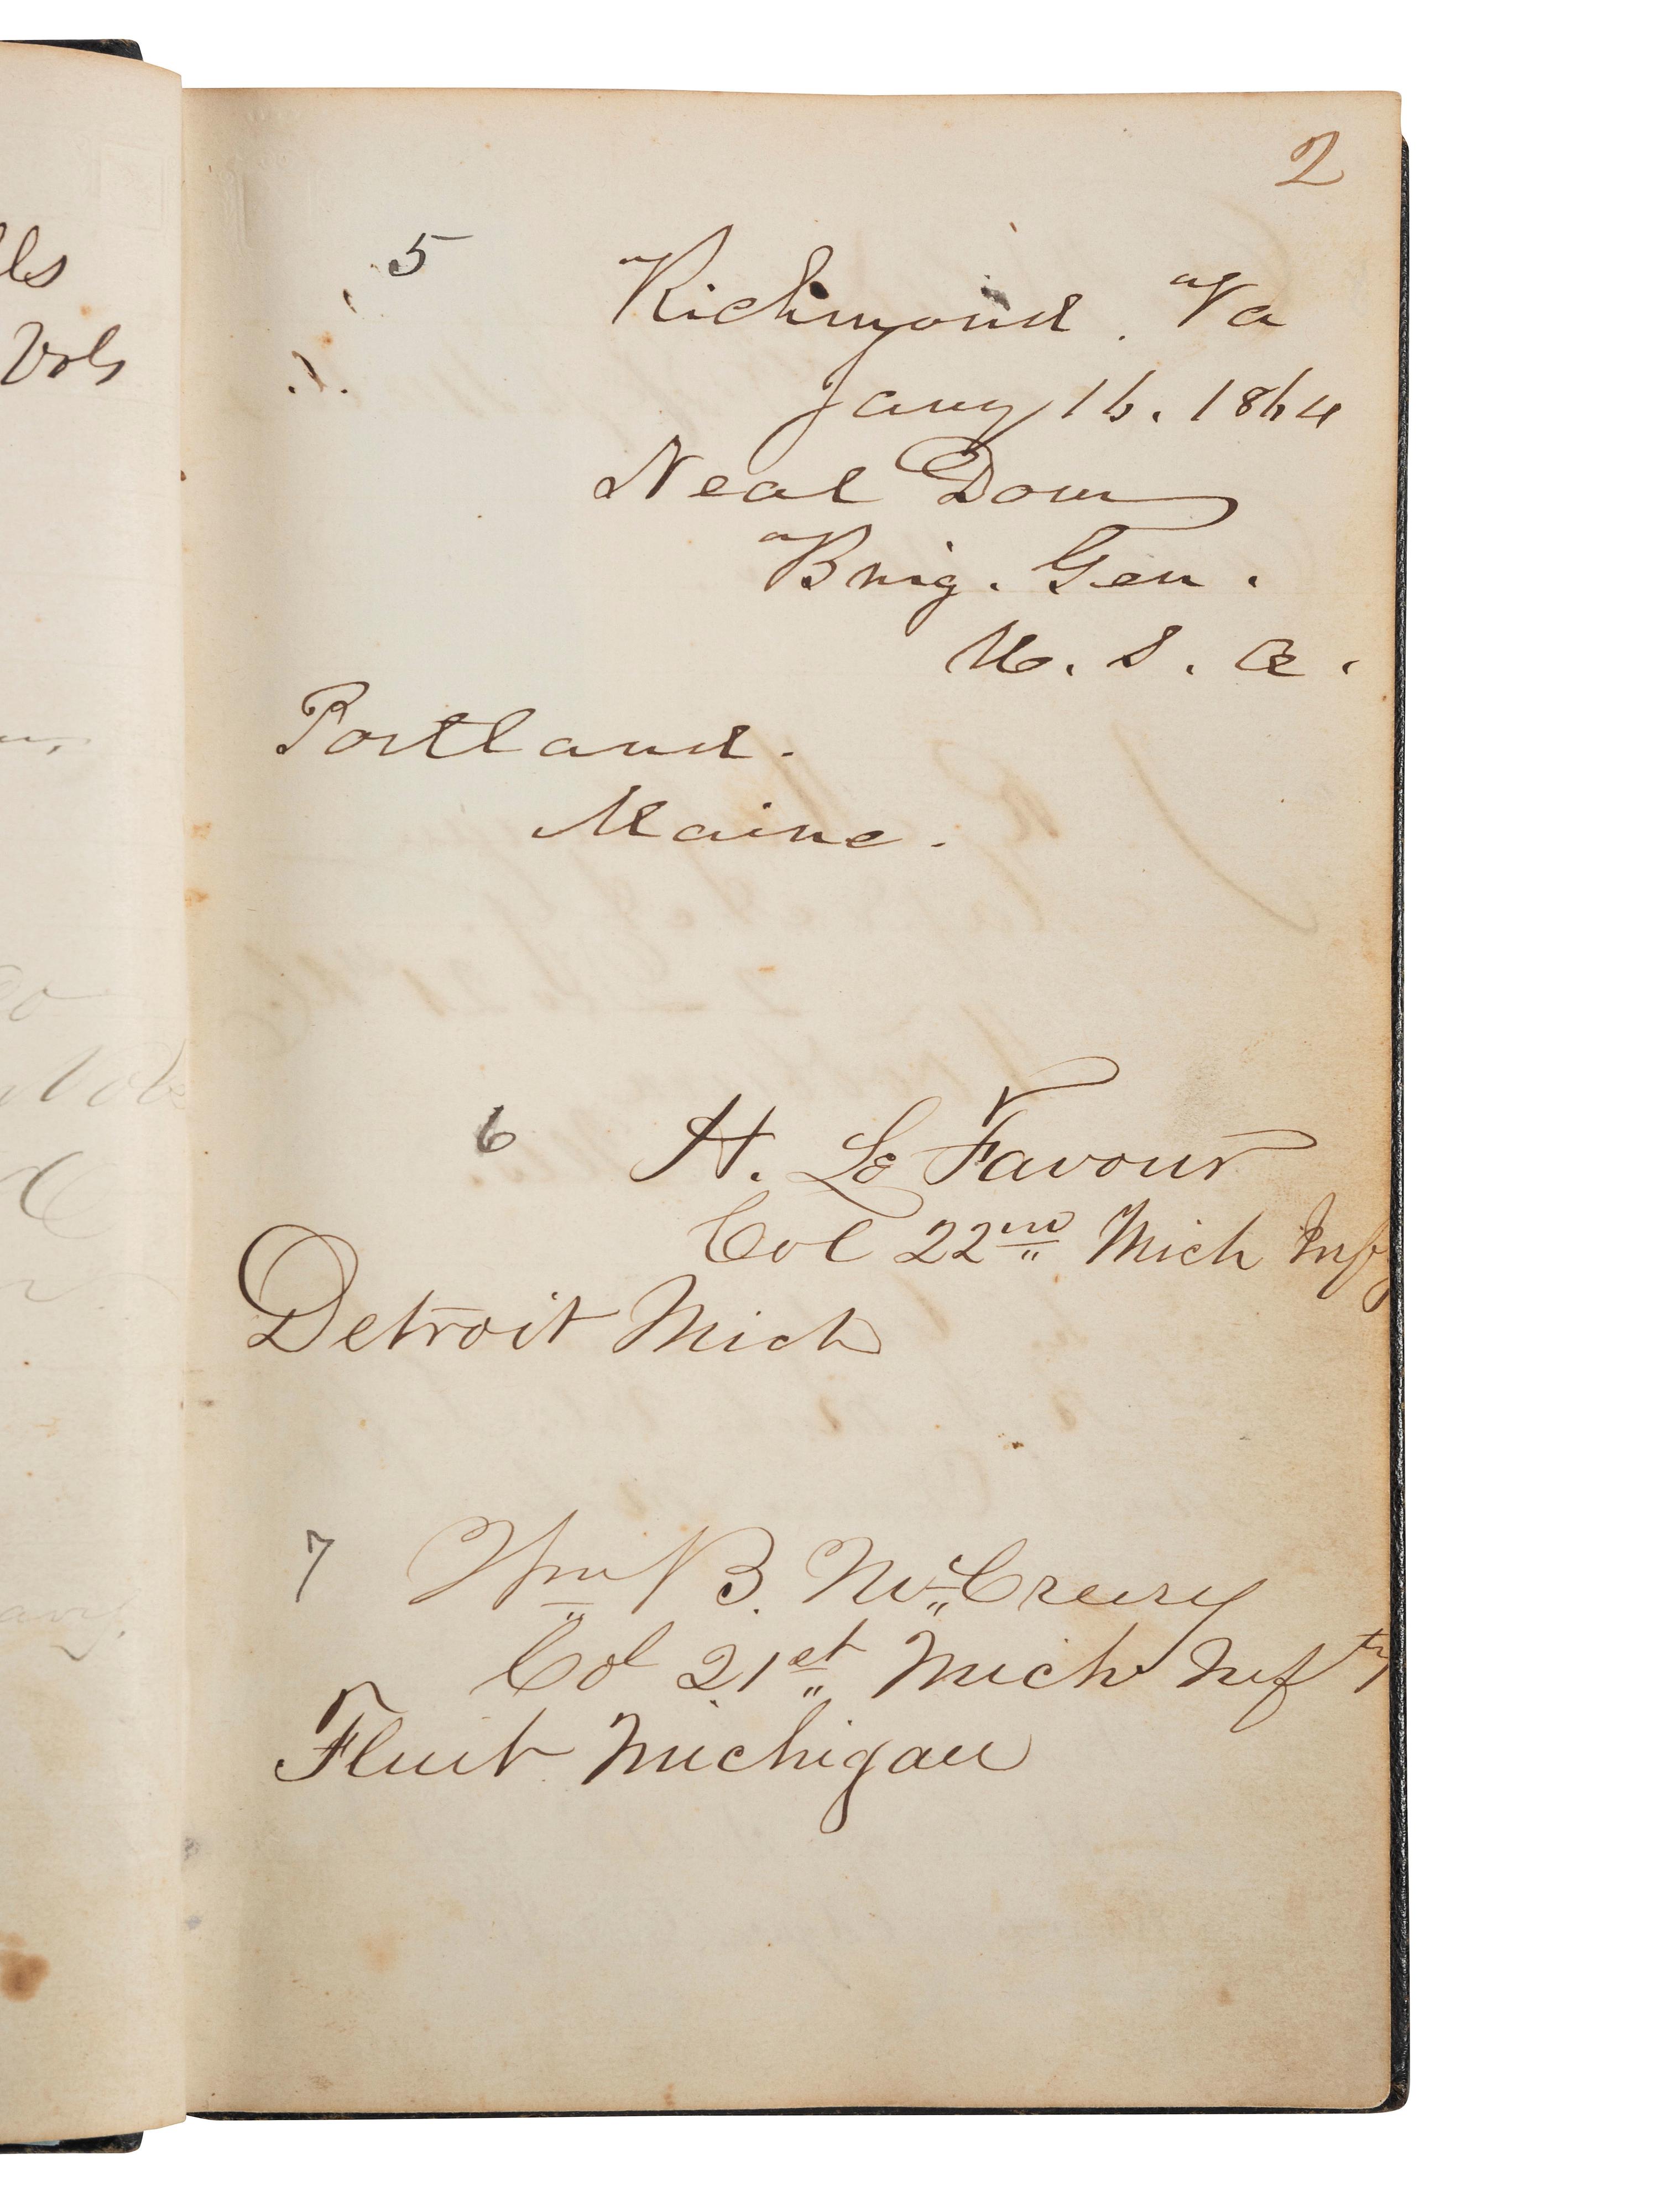 ls
Vols
2
5
Richmond. Va
Jany 16. 1864
Neal Dow
Brig. Gen.
U. S. A.
Portland.
Maine.
6
H. Le Favour
Col 22nd Mich Infy
Detroit Mich
7
Wm B. McCreery
Col 21st Mich Infty
Flint Michigan